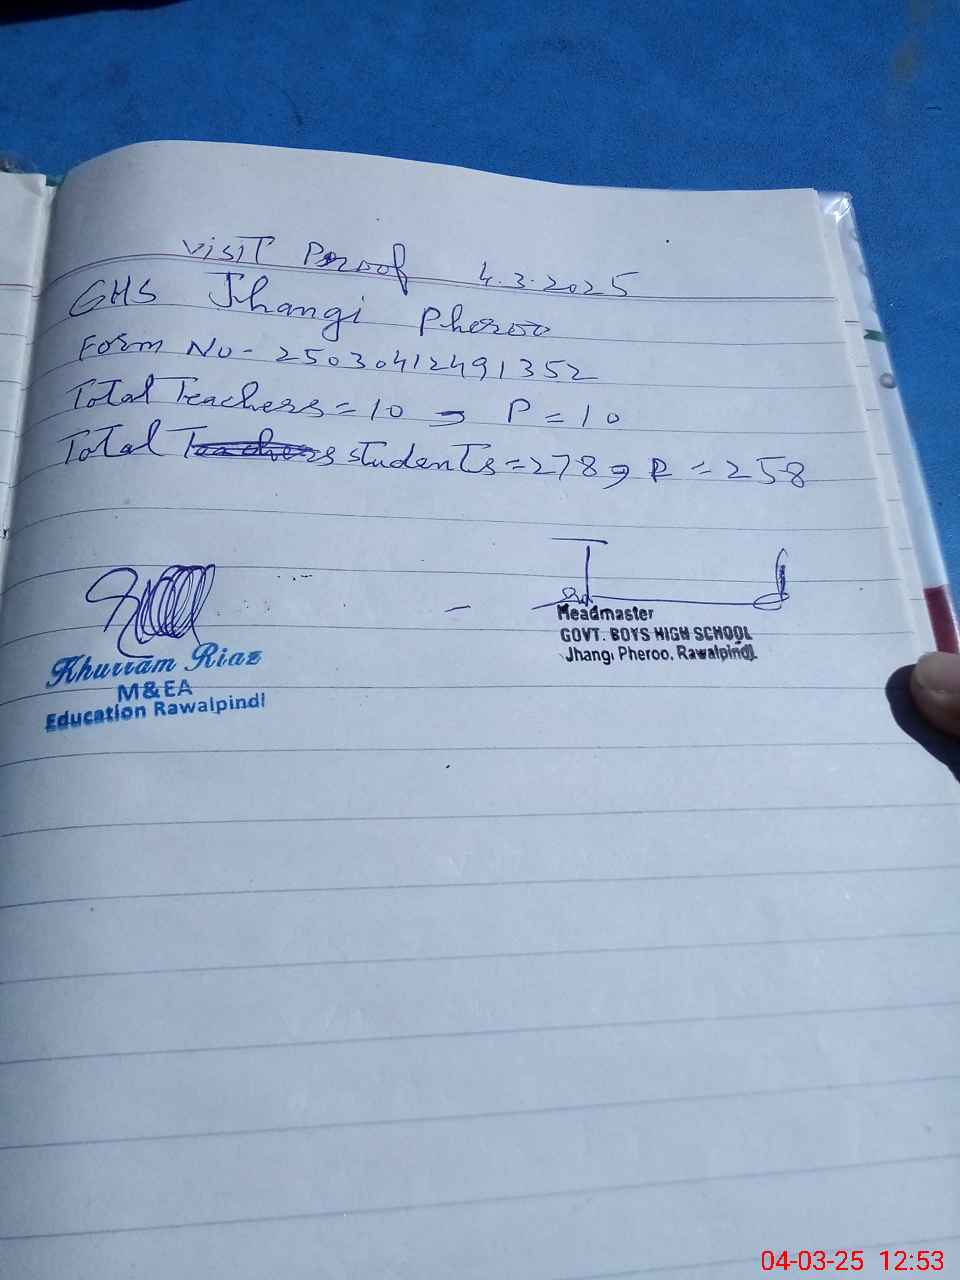 Visit Proof 4.3.2025
GHS Jhangi Pheroo
Form No - 25030412491352
Total Teachers = 10 , P = 10
Total Teachers students = 278 , P = 258
Khurram Riaz
M&EA
Education Rawalpindi
Headmaster
GOVT. BOYS HIGH SCHOOL
Jhangi Pheroo, Rawalpindi.
04-03-25 12:53